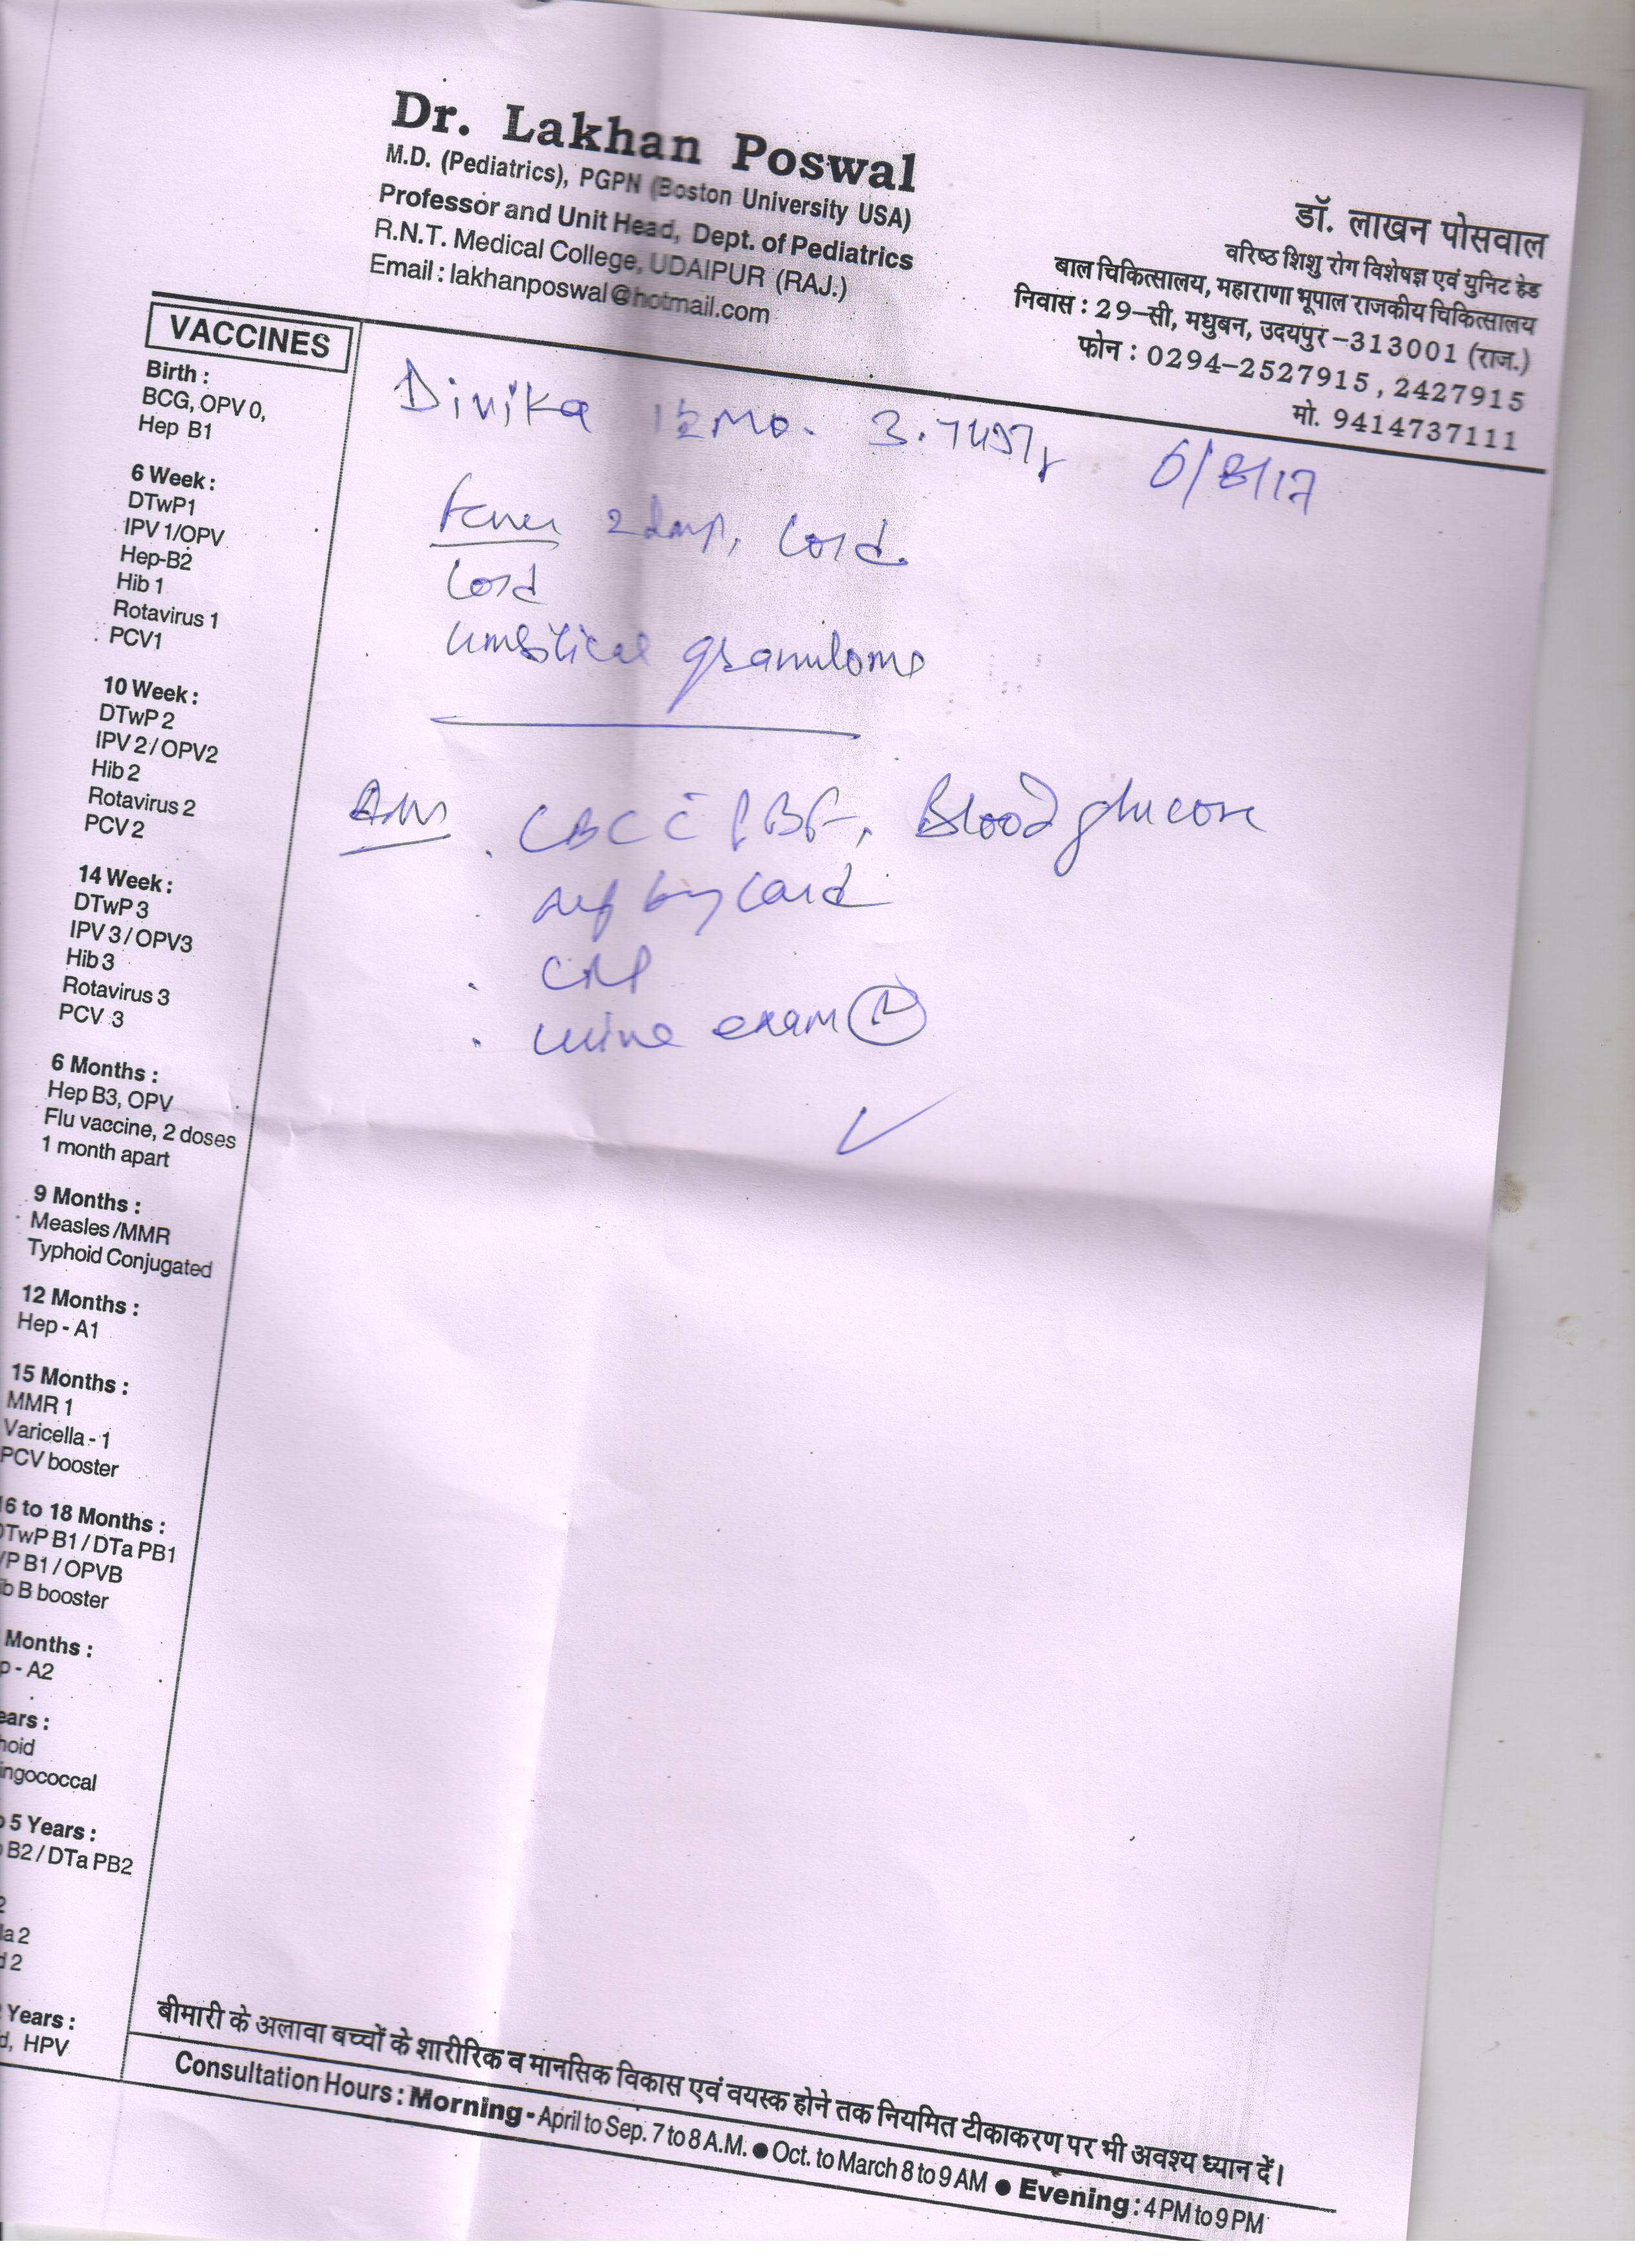 Dr. Lakhan Poswal
M.D. (Pediatrics), PGPN (Boston University USA)
Professor and Unit Head, Dept. of Pediatrics
R.N.T. Medical College, UDAIPUR (RAJ.)
Email : lakhanposwal@hotmail.com
डॉ. लाखन पोसवाल
वरिष्ठ शिशु रोग विशेषज्ञ एवं युनिट हेड
बाल चिकित्सालय, महाराणा भूपाल राजकीय चिकित्सालय
निवास : 29-सी, मधुबन, उदयपुर-313001 (राज.)
फोन : 0294-2527915, 2427915
मो. 9414737111
VACCINES
Birth :
BCG, OPV 0,
Hep B1
6 Week :
DTwP1
IPV 1/OPV
Hep-B2
Hib 1
Rotavirus 1
PCV1
10 Week :
DTwP 2
IPV 2 / OPV2
Hib 2
Rotavirus 2
PCV 2
14 Week :
DTwP 3
IPV 3 / OPV3
Hib 3
Rotavirus 3
PCV 3
6 Months :
Hep B3, OPV
Flu vaccine, 2 doses
1 month apart
9 Months :
Measles /MMR
Typhoid Conjugated
12 Months :
Hep - A1
15 Months :
MMR 1
Varicella - 1
PCV booster
6 to 18 Months :
DTwP B1 / DTa PB1
VP B1 / OPVB
ib B booster
Months :
p - A2
ears :
hoid
ingococcal
5 Years :
B2 / DTa PB2
2
la 2
d 2
Years :
d, HPV
Divika
Fever 2 days, Cord.
Cord
Umbilical granuloma
CBC c̄ PBF, Blood glucose
by Card
CRP
urine exam
बीमारी के अलावा बच्चों के शारीरिक व मानसिक विकास एवं वयस्क होने तक नियमित टीकाकरण पर भी अवश्य ध्यान दें।
Consultation Hours : Morning - April to Sep. 7 to 8 A.M. ● Oct. to March 8 to 9 AM ● Evening : 4 PM to 9 PM